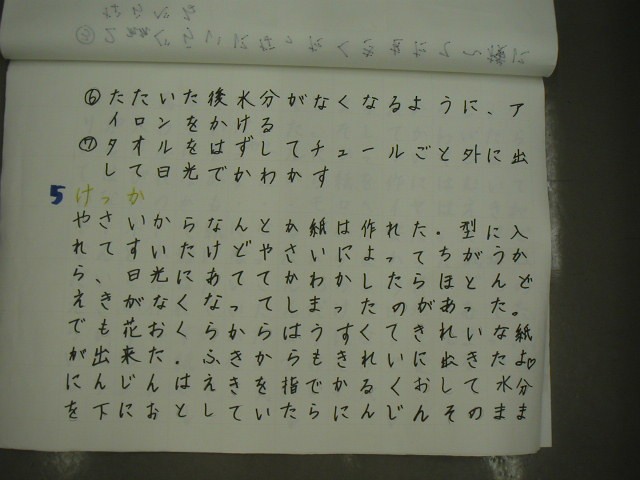 ⑥ たたいた後水分がなくなるように、ア
イロンをかける
⑦ タオルをはずしてチュールごと外に出
して日光でかわかす
5 けっか
やさいからなんとか紙は作れた。型に入
れてすいたけどやさいによってちがうか
ら、日光にあててかわかしたらほとんど
えきがなくなってしまったのがあった。
でも花おくらからはうすくてきれいな紙
が出来た。ふきからもきれいに出きたよ♡
にんじんはえきを指でかるくおして水分
を下におとしていたらにんじんそのまま